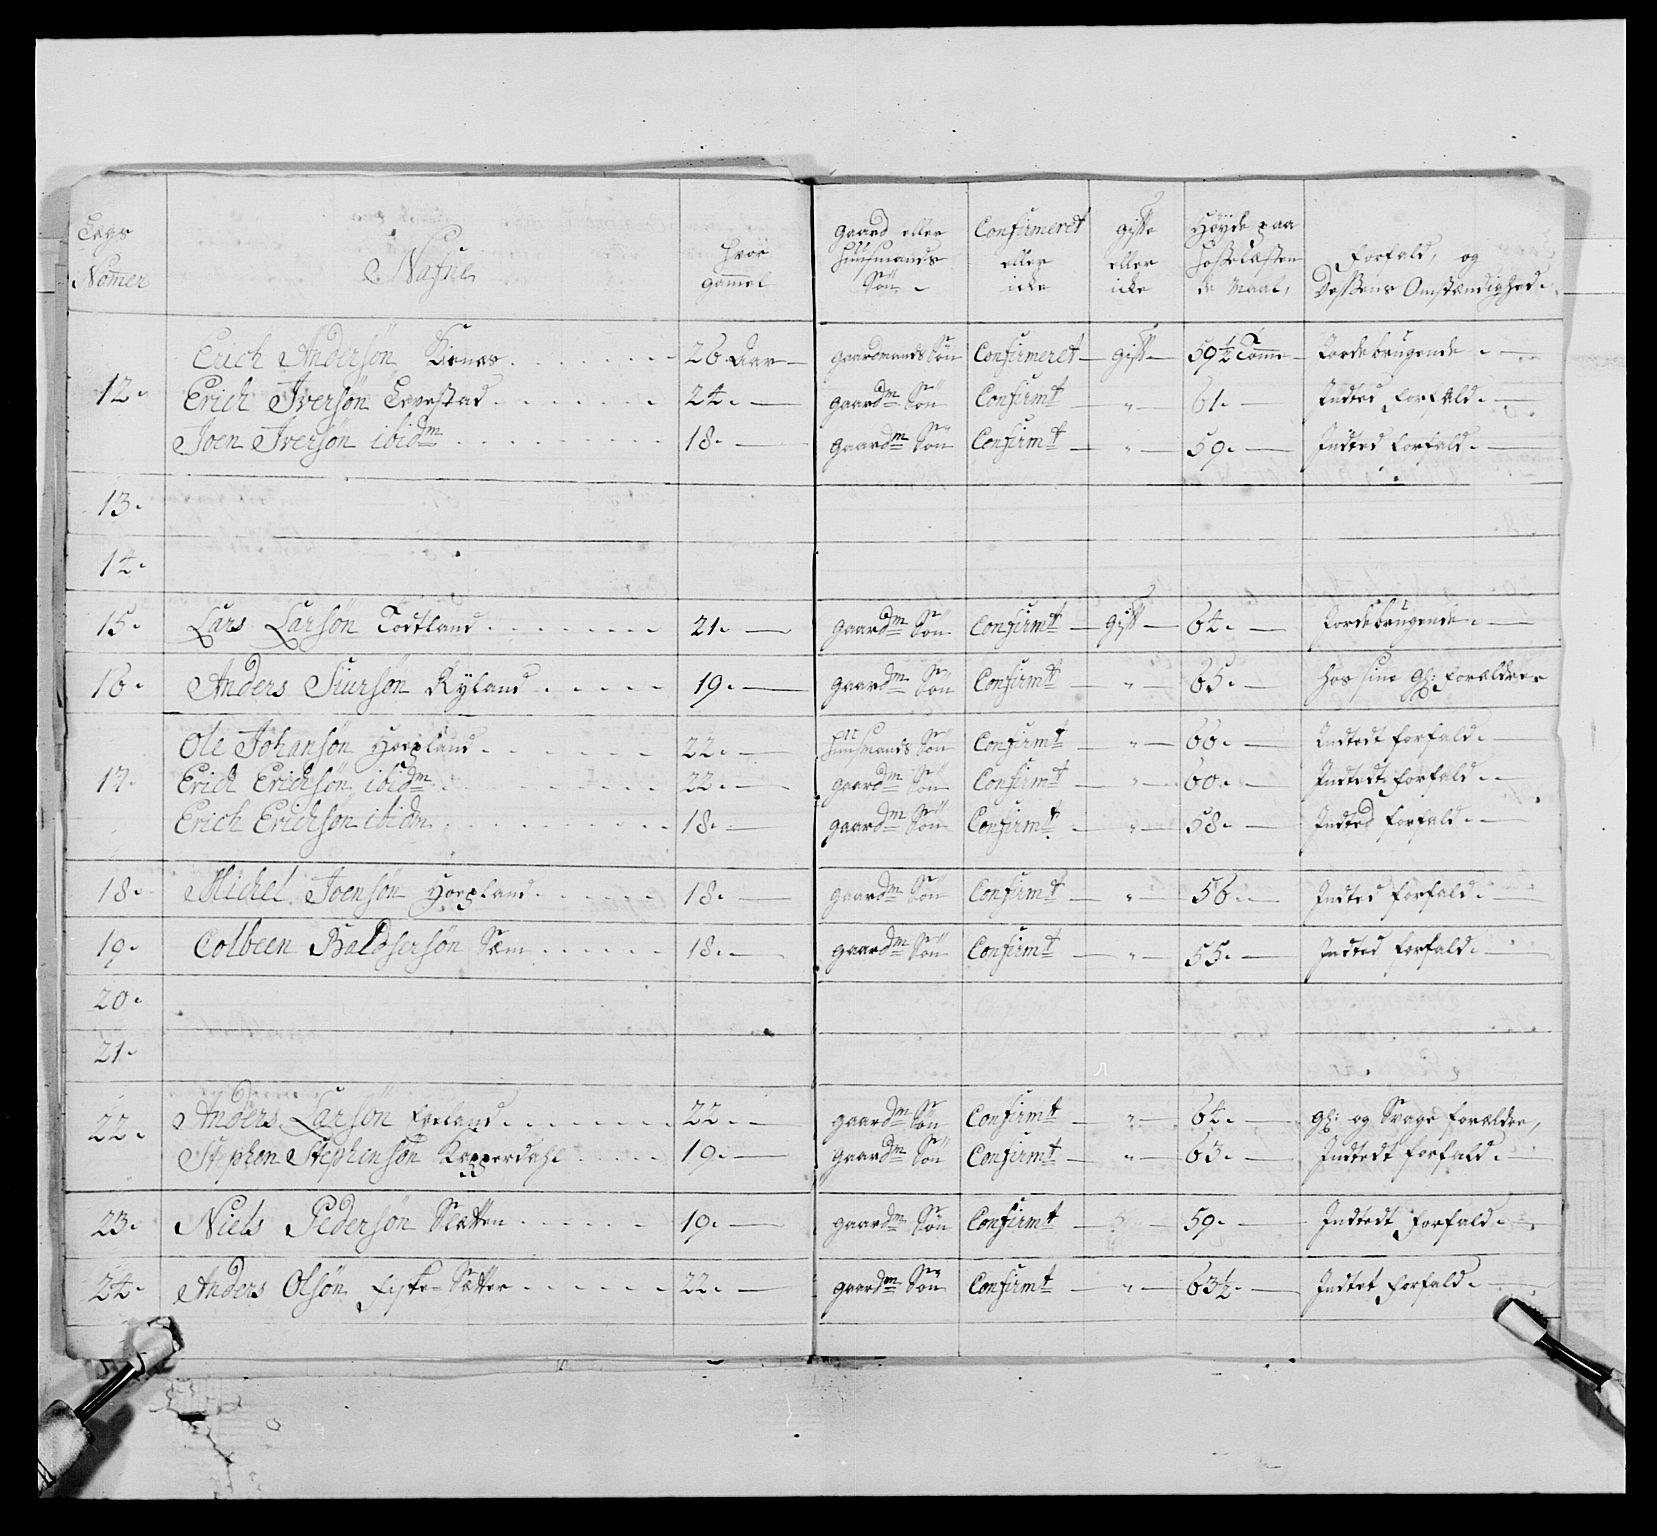 Lægs Nomer | Nafne | Hvor gammel | Gaard eller Huusmands Søn | Confirmeret eller icke | Gifte eller icke | Høyde paa Hosselæsten de Maal, | Forfald, og Dessens Omstændighed.
12. | Erich Andersøn Kirnes | 26 Aar | gaardmands Søn | Confirmeret | gift | 59½ Tomme | Jordebrugende
Erich Iversøn Levestad | 24. | gaardm Søn | Confirmt | " | 61. | Indted Forfald.
Joen Iversøn ibidm | 18. | gaardm Søn | Confirmt | " | 59. | Indted Forfald.
13.
14.
15. | Lars Larsøn Todtland | 21. | gaardm Søn | Confirmt | gift | 64. | Jordebrugende.
16. | Anders Siursøn Ryland | 19. | gaardm Søn | Confirmt | " | 65. | Hos sine gl: Forældrer
17. | Ole Johansøn Hopland | 22. | Huusmands Søn | Confirmt | " | 66. | Indtedt Forfald.
Erich Erichsøn ibidm | 22. | gaardm Søn | Confirmt | " | 60. | Indtedt Forfald.
Erich Erichsøn ibidm | 18. | gaardm Søn | Confirmt | " | 58. | Indted Forfald.
18. | Michel Joensøn Hopland | 18. | gaardm Søn | Confirmt | " | 56. | Indted Forfald.
19. | Colbeen Baldsersøn Sæm | 18. | gaardm Søn | Confirmt | " | 55. | Indted Forfald.
20.
21.
22. | Anders Larsøn Freland | 22. | gaardm Søn | Confirmt | " | 64. | gl: og Svage Forældre,
Stephen Stephensøn Kapperdahl | 19. | gaardm Søn | Confirmt | " | 63. | Indtedt Forfald.
23. | Niels Pedersøn Slætten | 19. | gaardm Søn | Confirmt | 59. | Indtedt Forfald.
24. | Anders Olsøn Fiske-Sætter | 22. | gaardm Søn | Confirmt | " | 63½. | Indtet Forfald.